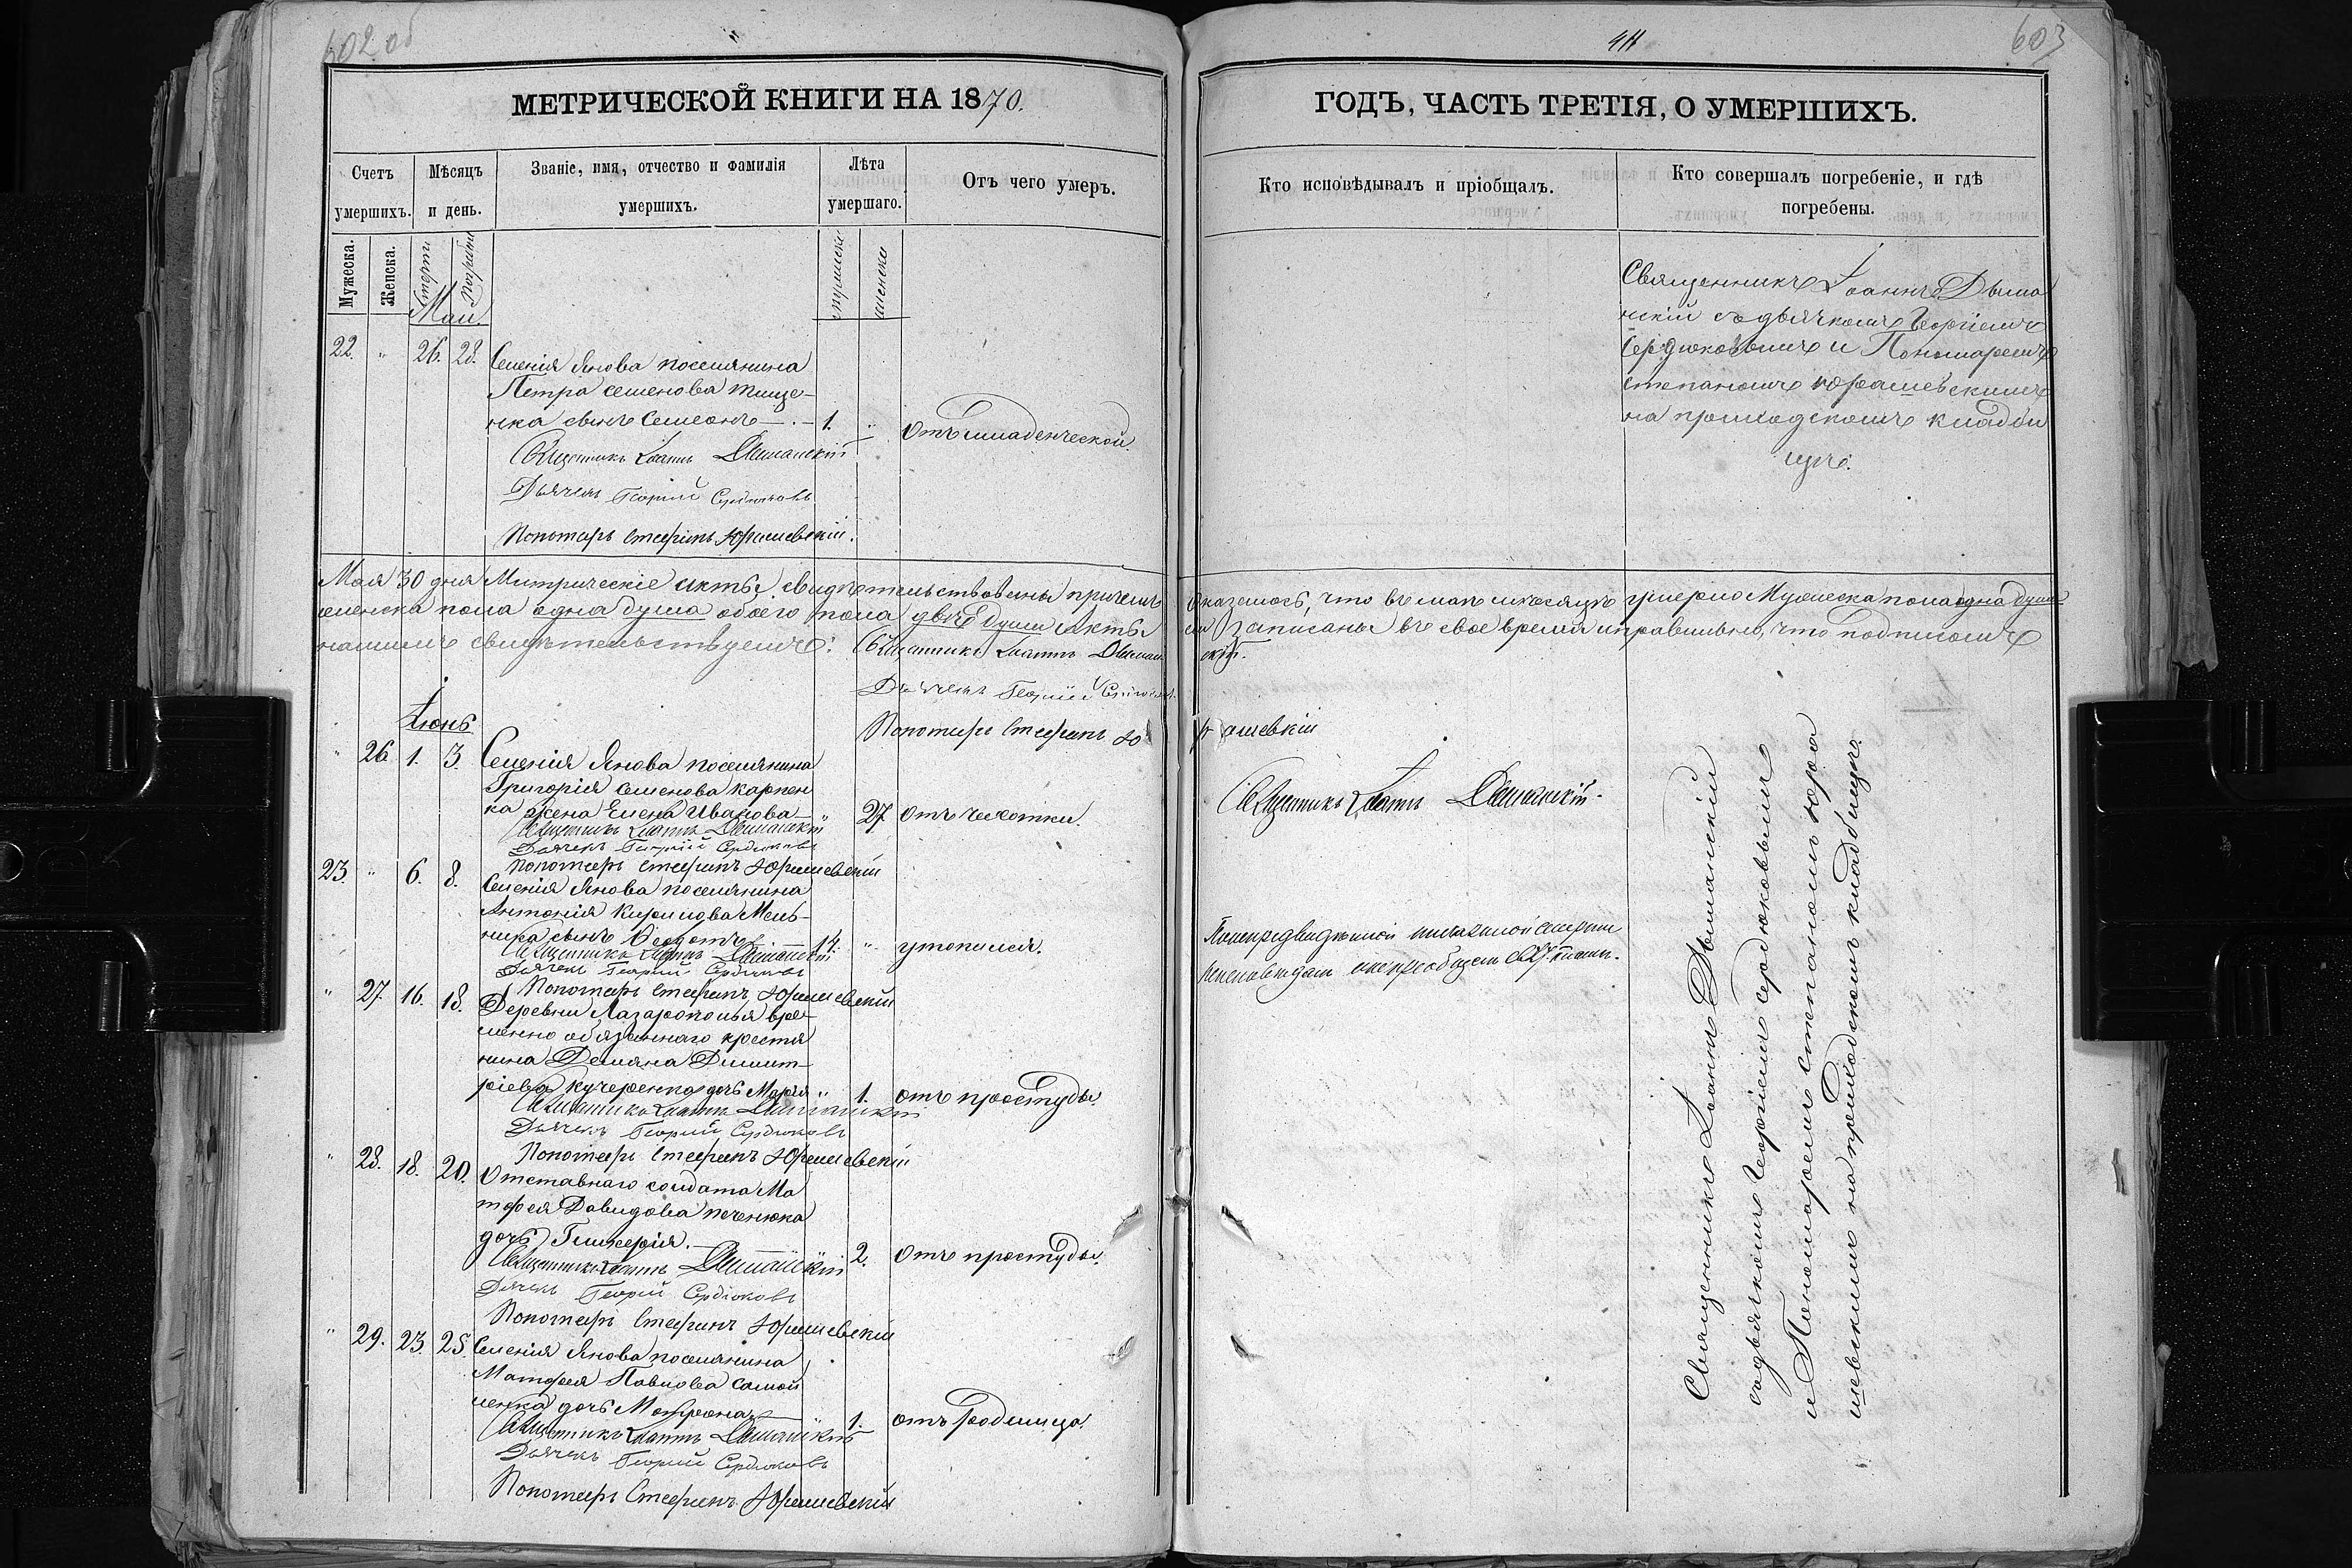 602 об
МЕТРИЧЕСКОЙ КНИГИ НА 1870.
Счетъ умершихъ.
Мѣсяцъ и день.
Званіе, имя, отчество и фамилія умершихъ.
Лѣта умершаго.
Отъ чего умеръ.
Мужеска.
Женска.
Смерти
Погриб
мужеска
женска
Маи
22. " 26. 28. Селенія Янова поселянина
Петра семенова тище-
нка сынъ Семеонъ 1. " Отъ младенческой
Священникъ Іоаннъ Дыманскій
Дьячекъ Георгій Сердюковъ
Пономарь Стефанъ Юрашевскій.
Мая 30 дня Митрическіе акты свидѣтельствованы причемъ
женска пола одна душа обоего пола двѣ души Акты
нашимъ свидѣтельствуемъ: Священникъ Іоаннъ Дыман
Дьячекъ Георгій
Пономарь Стефанъ Ю
Іюнь
" 26 1. 3. Селенія Янова поселянина
Григорія семенова карпен
ка жена Елена Иванова " 27 отъ чехотки.
Священникъ Іоаннъ Дыманскій
Дьячекъ Георгій Сердюковъ
Пономарь Стефанъ Юрашевскій
23. " 6. 8. Селенія Янова поселянина
Антонія Кирилова Мель-
ника сынъ Ѳеодотъ 14. " утопился.
Священникъ Іоаннъ Дыманскій
Дьячекъ Георгій Сердюковъ
Пономарь Стефанъ Юрашевскій
" 27. 16. 18. Деревни Лазарополья вре-
менно обязаннаго крестя
нина Демяна Димит-
ріева Кучеренка дочь Марія " 1. отъ простуды.
Священникъ Іоаннъ Дыманскій
Дьячекъ Георгій Сердюковъ
Пономарь Стефанъ Юрашевскій
" 28. 18. 20. Отставнаго солдата Ма
тфея Давидова печенюка
дочь Гликерія. 2. Отъ простуды.
Священникъ Іоаннъ Дыманскій
Дьячекъ Георгій Сердюковъ
Пономарь Стефанъ Юрашевскій
" 29. 23. 25. Селенія Янова поселянина
Матфея Павлова самой
ленка дочь Мотрона " 1. отъ родимца.
Священникъ Іоаннъ Дыманскій
Дьячекъ Георгій Сердюковъ
Пономарь Стефанъ Юрашевскій
603
ГОДЪ, ЧАСТЬ ТРЕТІЯ, О УМЕРШИХЪ.
Кто исповѣдывалъ и пріобщалъ.
Кто совершалъ погребеніе, и гдѣ погребены.
Священникъ Іоаннъ Дыма
нскій съ дьячкомъ Георгіемъ
Сердюковымъ и Пономаремъ
степаномъ юрашевскимъ
на приходскомъ кладби
щѣ.
оказалось, что въ маѣ мѣсяцѣ умерло Мужеска пола одна душа
записаны въ свое время и правильно, что подписомъ
скій.
рашевскій
Священникъ Іоаннъ Дыманскій.
Священникъ Іоаннъ Дыманскій
съ дьячкомъ Георгіемъ сердюковымъ
и Пономаремъ степаномъ юра
шевскимъ на приходскомъ кладбищѣ.